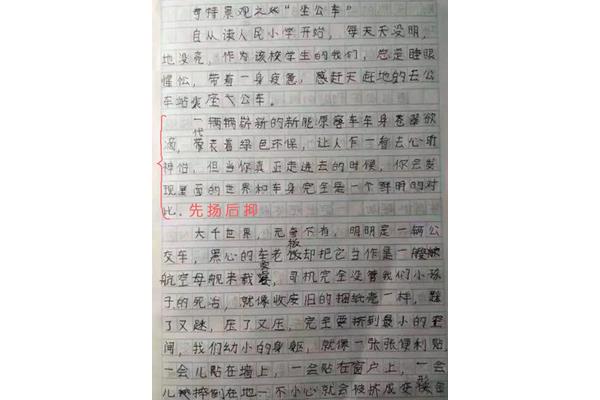 奇特景观之“坐公车”
自从读人民小学开始，每天天没明，
地没亮，作为该校学生的我们，总是睡眼
惺忪，带着一身疲惫，感赶天赶地的去公
车站坐公车。
一辆辆崭新的新能原客车车身苍翠欲
滴，代表着绿色环保，让人乍一看去心旷
神怡，但当你真正走进去的时候，你会发
现里面的世界和车身完全是一个鲜明的对
比。先扬后抑
大千世界，无奇不有，明明是一辆公
交车，黑心的车老板却把它当作是一艘
航空母舰来载客，司机完全没管我们小孩
子的死活，就像收废旧的捆纸壳一样，
了又，压了又压，完全要挤到最小的空
间，我们幼小的身躯，就像一张张便利贴
一会儿贴在墙上，一会贴在窗户上，一会
儿摔倒在地一不小心就会被挤成变